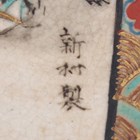 新村製